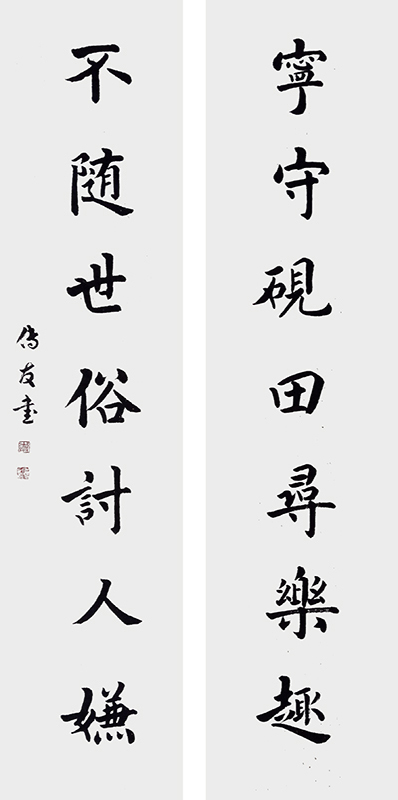 寧守硯田尋樂趣
不随世俗討人嫌
傳友書